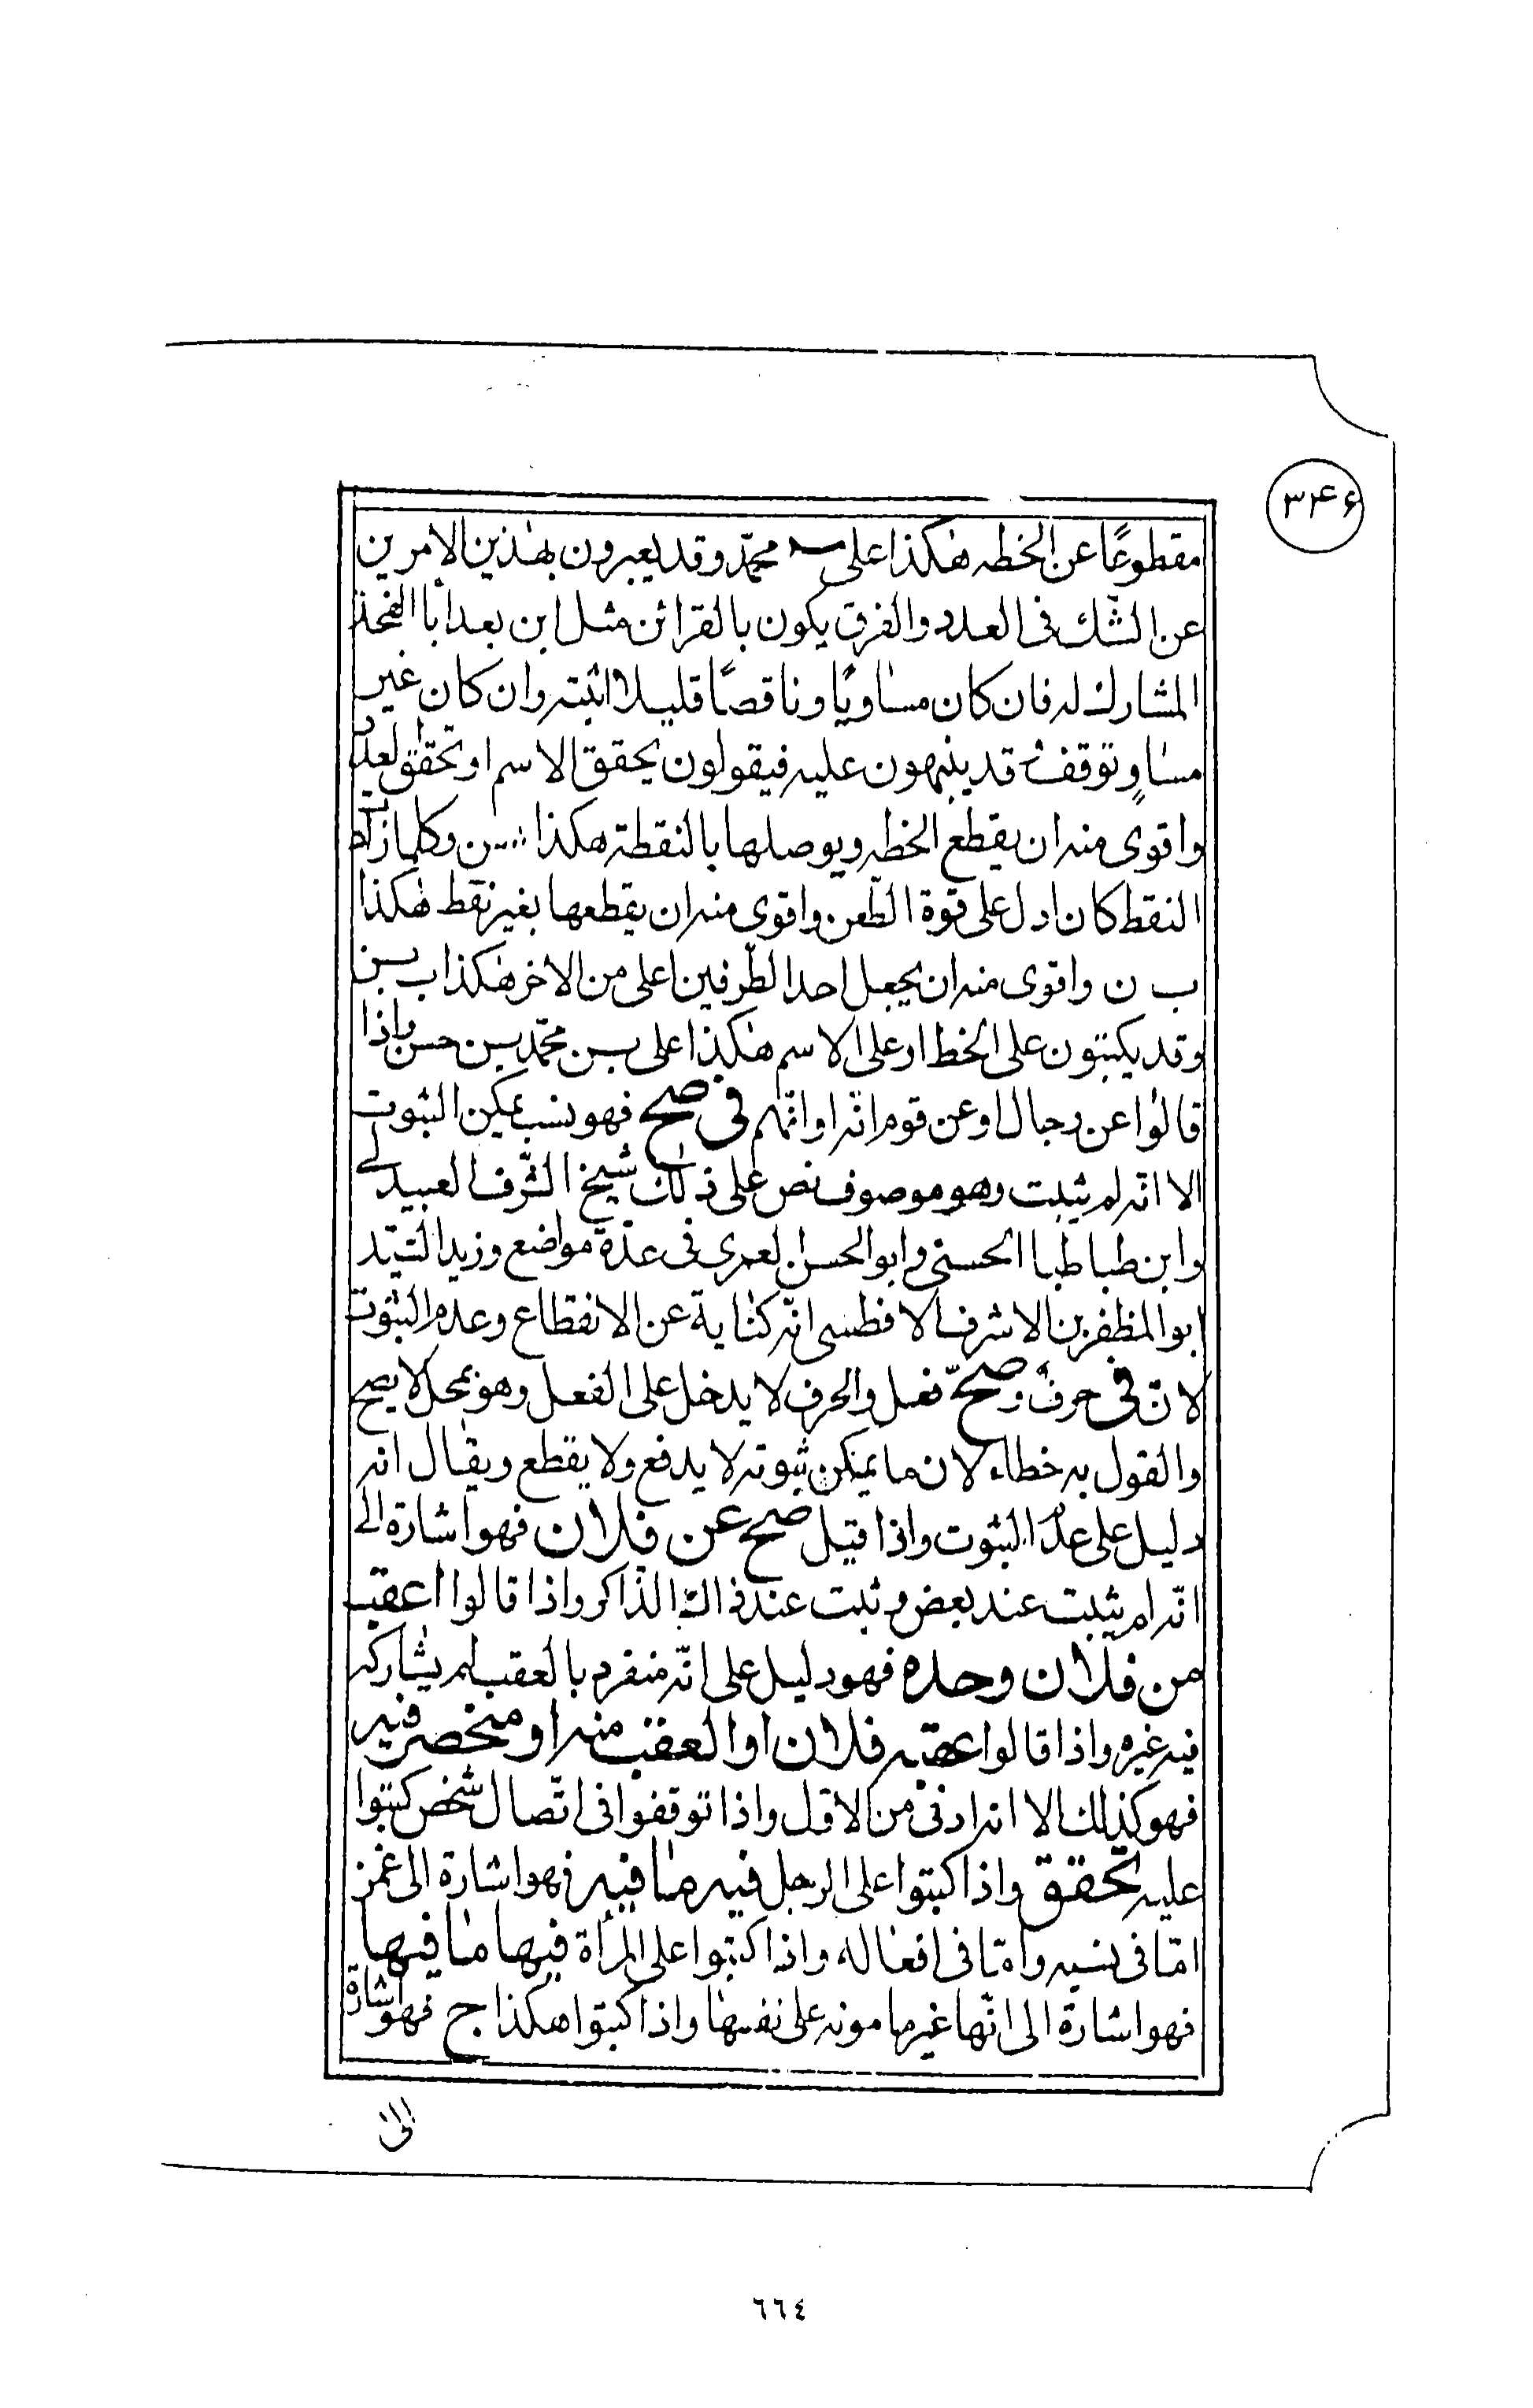 ۳۴۶
مقطوعًا عن الخطه هكذا على محمّد وقد يعبرون بهذين الامرين
عن الشّك فى العدد والفرق يكون بالقرائن مثل ابن بعد ابا الفخذ
المشارك له فان كان مساويًا وناقصًا قليلا اثبته وان كان غير
مساوٍ توقف قد ينبهون عليه فيقولون يحقق الاسم او تحقق لعدد
واقوى منه ان يقطع الخطه ويوصلها بالنقطة هكذا وكلما زاد
النقط كان ادل على قوة الطّعن واقوى منه ان يقطعها بغير نقط هكذا
ب ن واقوى منه ان يجعل احد الطّرفين اعلى من الاخر هكذا
وقد يكتبون على الخط او على الاسم هكذا على بن محمّد بن حسن واذا
قالوا عن رجال او عن قوم انّه او انّهم فى صح فهو نسب يمكن الثبوت
الا انّه لم يثبت وهو موصوف نص على ذلك شيخ الشّرف العبيدلى
وابن طباطبا الحسنى وابو الحسن العمرى فى عدّة مواضع وزيد السّيّد
ابو المظفر بن الاشرف الافطسى انّه كناية عن الانقطاع وعدم الثبوت
لانّ فى حرف وصحّ فعل والحرف لا يدخل على الفعل وهو بمحل لا يصح
والقول به خطاء لان ما يمكن ثبوته لا يدفع ولا يقطع ويقال انه
دليل على عدم الثبوت واذا قيل صح عن فلان فهو اشارة الى
انّه لم يثبت عند بعض وثبت عند ذاك الذّاكر واذا قالوا اعقب
من فلان وحده فهو دليل على انّه منفرد بالعقب لم يشاركه
فيه غيره واذا قالوا عقبه فلان او العقب منه او منحصر فيه
فهو كذلك الا انه ادنى من الاول واذا توقفوا فى اتّصال شخص كتبوا
عليه تحقق واذا كتبوا على الرجل فيه ما فيه فهو اشارة الى غمز
امّا فى نسبه وامّا فى افعاله واذا كتبوا على المرأة فيها ما فيها
فهو اشارة الى انّها غير مامونه على نفسها واذا كتبوا هكذا ج فهو اشارة
الى
٦٦٤